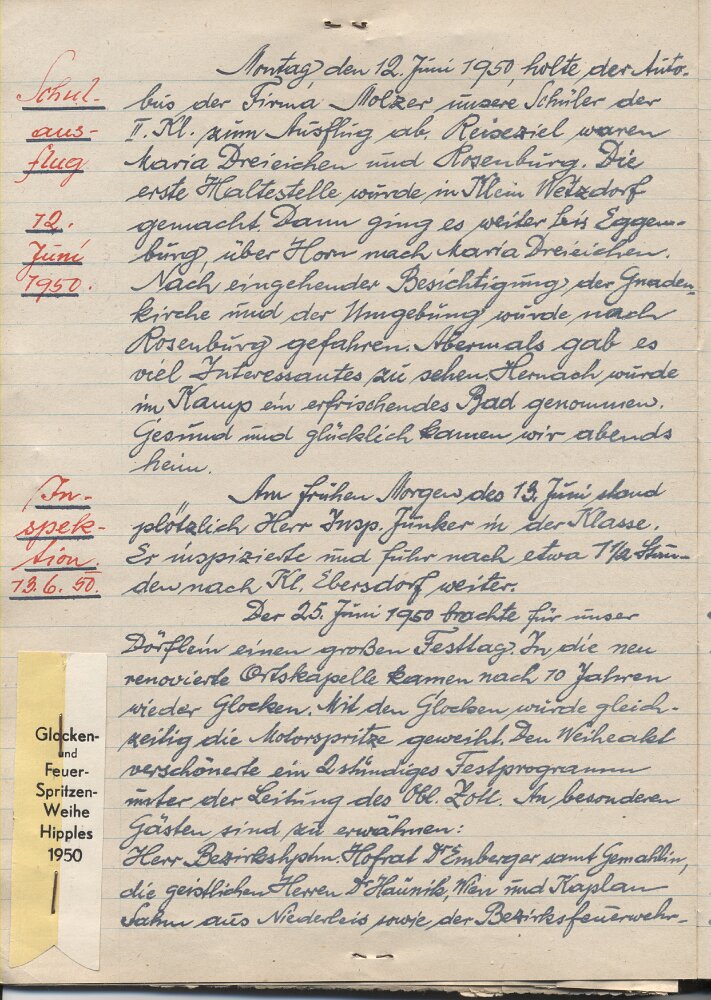 Schul-
aus-
flug
12.
Juni
1950.
Montag den 12. Juni 1950 holte der Auto-
bus der Firma Molzer unsere Schüler der
II. Kl. zum Ausflug ab. Reiseziel waren
Maria Dreieichen und Rosenburg. Die
erste Haltestelle wurde in Klein Wetzdorf
gemacht. Dann ging es weiter bis Eggen-
burg über Horn nach Maria Dreieichen.
Nach eingehender Besichtigung der Gnaden-
kirche und der Umgebung wurde nach
Rosenburg gefahren. Abermals gab es
viel Interessantes zu sehen. Hernach wurde
im Kamp ein erfrischendes Bad genommen.
Gesund und glücklich kamen wir abends
heim.
In-
spek-
tion.
13.6.50.
Am frühen Morgen des 13. Juni stand
plötzlich Herr Insp. Junker in der Klasse.
Er inspizierte und fuhr nach etwa 1 1/2 Stun-
den nach Kl. Ebersdorf weiter.
Der 25. Juni 1950 brachte für unser
Dörflein einen großen Festtag. In die neu
renovierte Ortskapelle kamen nach 10 Jahren
wieder Glocken. Mit den Glocken wurde gleich-
zeitig die Motorspritze geweiht. Den Weiheakt
verschönerte ein 2stündiges Festprogramm
unter der Leitung des Obl. Zoll. An besonderen
Gästen sind zu erwähnen:
Herr Bezirkshptm. Hofrat Dr Emberger samt Gemahlin,
die geistlichen Herren Dr Haunik, Wien und Kaplan
aus Niederleis sowie der Bezirksfeuerwehr-
Glocken-
und
Feuer-
Spritzen-
Weihe
Hipples
1950